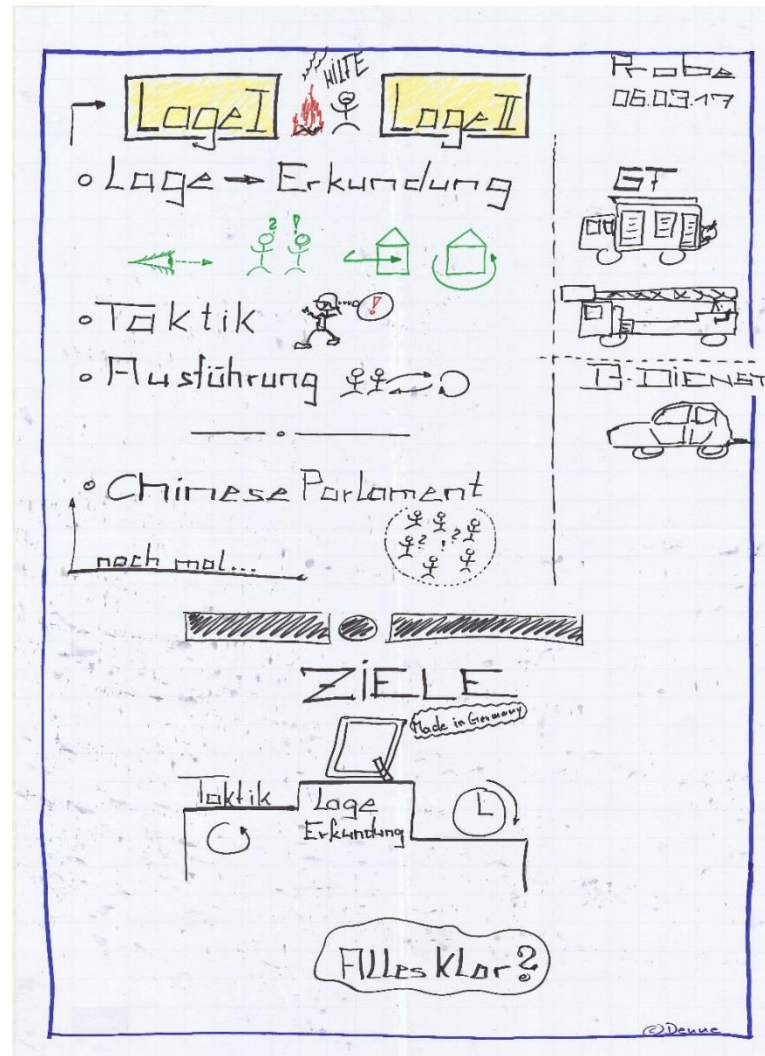 Probe
06.03.17
Lage I
HILFE
Lage II
Lage → Erkundung
2 !
Taktik
!
Ausführung
B-DIENST
Chinese Parlament
2 ! 2
noch mal...
ZiELE
Made in Germany
Taktik
Lage
Erkundung
Alles klar?
©Denne